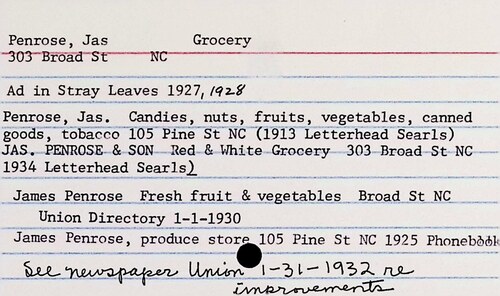 Penrose, Jas Grocery
303 Broad St NC
Ad in Stray Leaves 1927, 1928
Penrose, Jas. Candies, nuts, fruits, vegetables, canned
goods, tobacco 105 Pine St NC (1913 Letterhead Searls)
JAS. PENROSE & SON Red & White Grocery 303 Broad St NC
1934 Letterhead Searls)
James Penrose Fresh fruit & vegetables Broad St NC
Union Directory 1-1-1930
James Penrose, produce store 105 Pine St NC 1925 Phonebook
See newspaper Union 1-31-1932 re
improvements